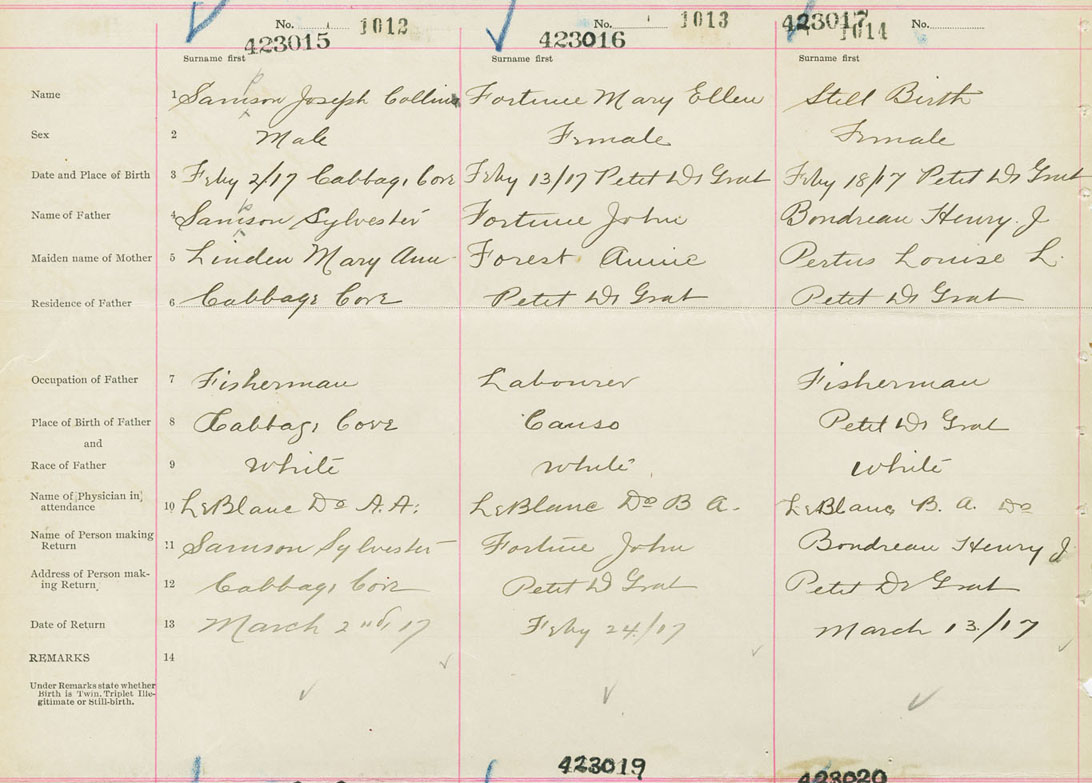 No. 1012 No. 1013 423017 No.
423015 423016 1014
Surname first Surname first Surname first
Name 1 Samson Joseph Collins Fortune Mary Ellen Still Birth
p
Sex 2 Male Female Female
Date and Place of Birth 3 Feby 2/17 Cabbage Cove Feby 13/17 Petit De Grat Feby 18/17 Petit De Grat
Name of Father 4 Samson Sylvester Fortune John Boudreau Henry J
p
Maiden name of Mother 5 Linden Mary Ann Forest Annie Pertus Louise L.
Residence of Father 6 Cabbage Cove Petit De Grat Petit De Grat
Occupation of Father 7 Fisherman Labourer Fisherman
Place of Birth of Father 8 Cabbage Cove Canso Petit De Grat
and
Race of Father 9 White White White
Name of Physician in attendance 10 LeBlanc Dr A.A. LeBlanc Dr B A. LeBlanc B. A. Dr
Name of Person making Return 11 Samson Sylvester Fortune John Boudreau Henry J
Address of Person making Return 12 Cabbage Cove Petit D Grat Petit De Grat
Date of Return 13 March 2nd 17 Feby 24/17 March 13/17
REMARKS 14
Under Remarks state whether
Birth is Twin, Triplet Ille-
gitimate or Still-birth.
423019 423020